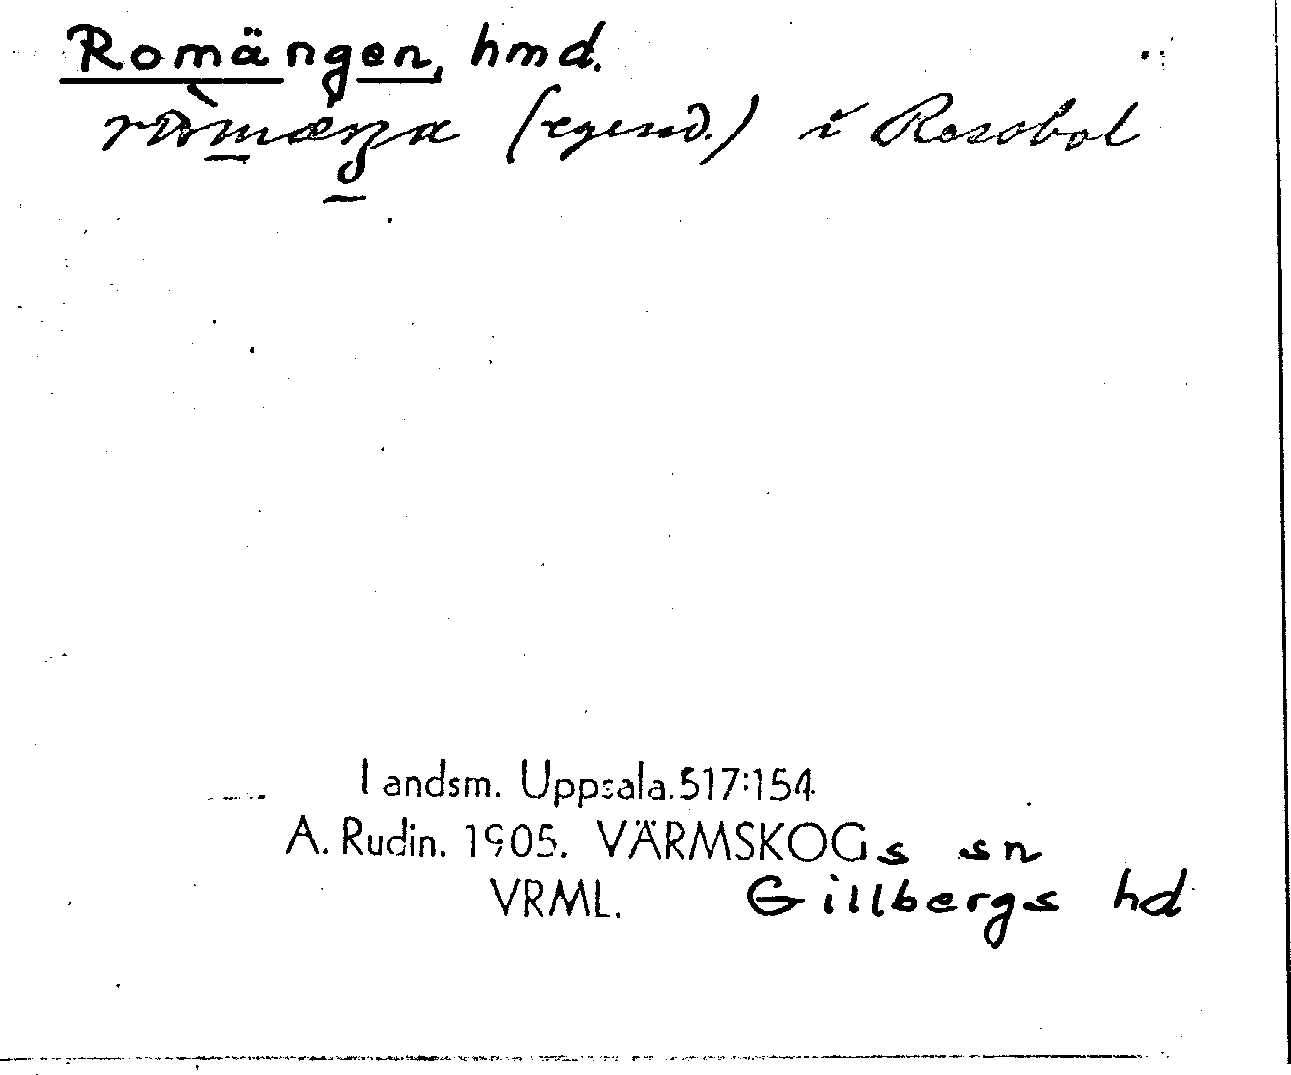 Romängen, hmd.
(egend.) i Rosobol
Landsm. Uppsala. 517:154
A. Rudin. 1905. VÄRMSKOGs sn
VRML. Gillbergs hd